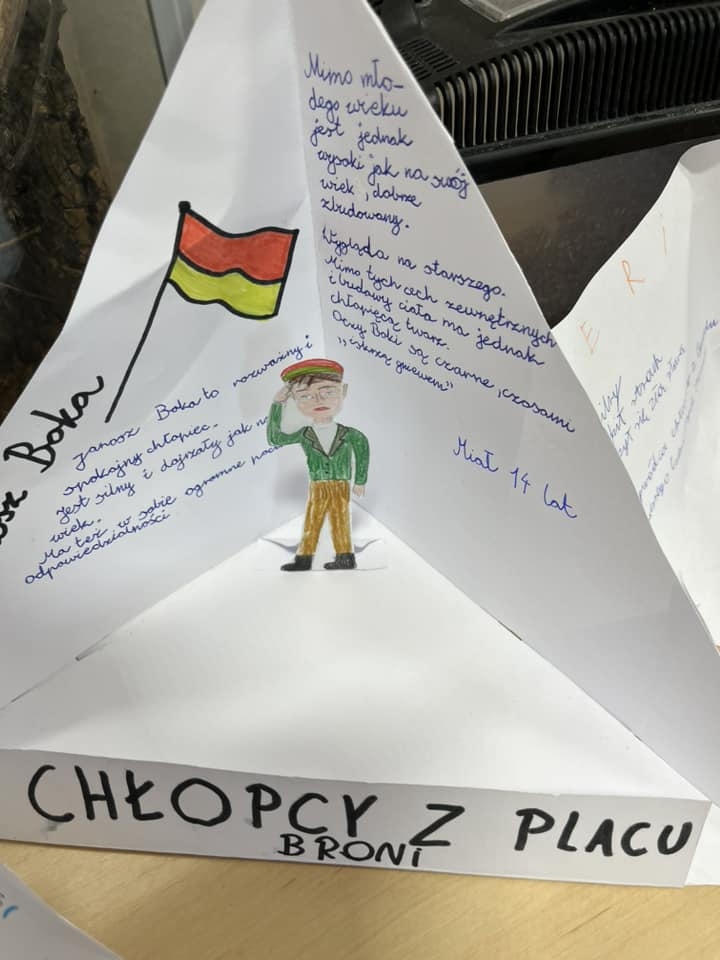 Boka
Janosz Boka to rozważny i
spokojny chłopiec.
Jest silny i dojrzały jak
wiek.
Ma też w sobie ogromne
odpowiedzialności
Mimo mło-
dego wieku
jest jednak
wysoki jak na swój
wiek, dobrze
zbudowany.
Wygląda na starszego.
Mimo tych cech zewnętrznych
i budowy ciała ma jednak
chłopięcą twarz.
Oczy Boki są czarne, czasami
"iskrzą gniewem"
Miał 14 lat
CHŁOPCY Z PLACU
BRONI
E R I
strach